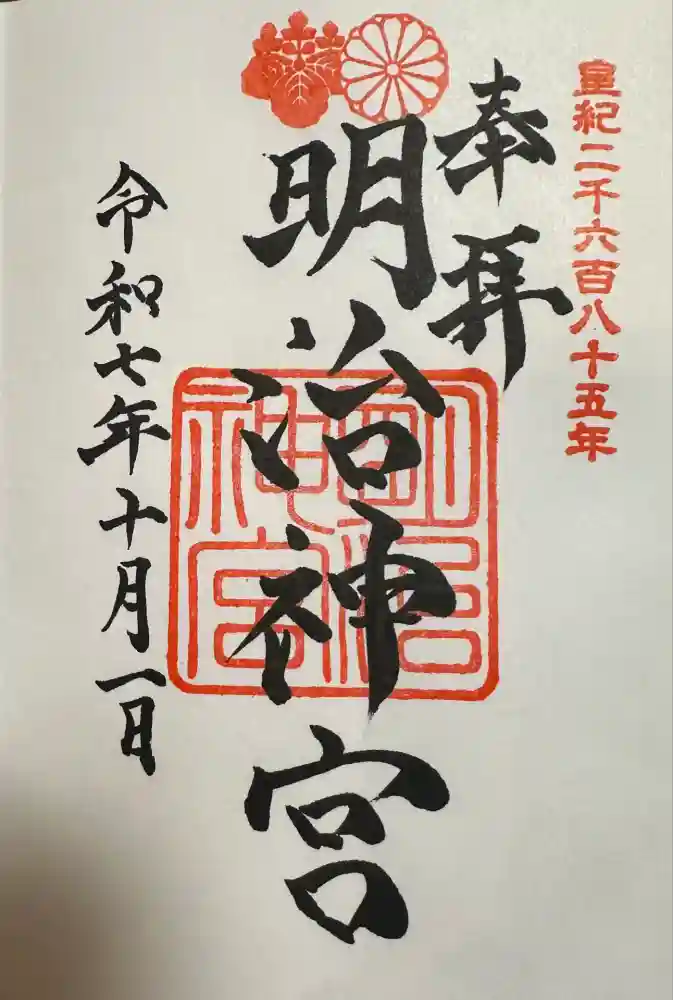 皇紀二千六百八十五年
奉拝
明治神宮
明治神宮
令和七年十月一日